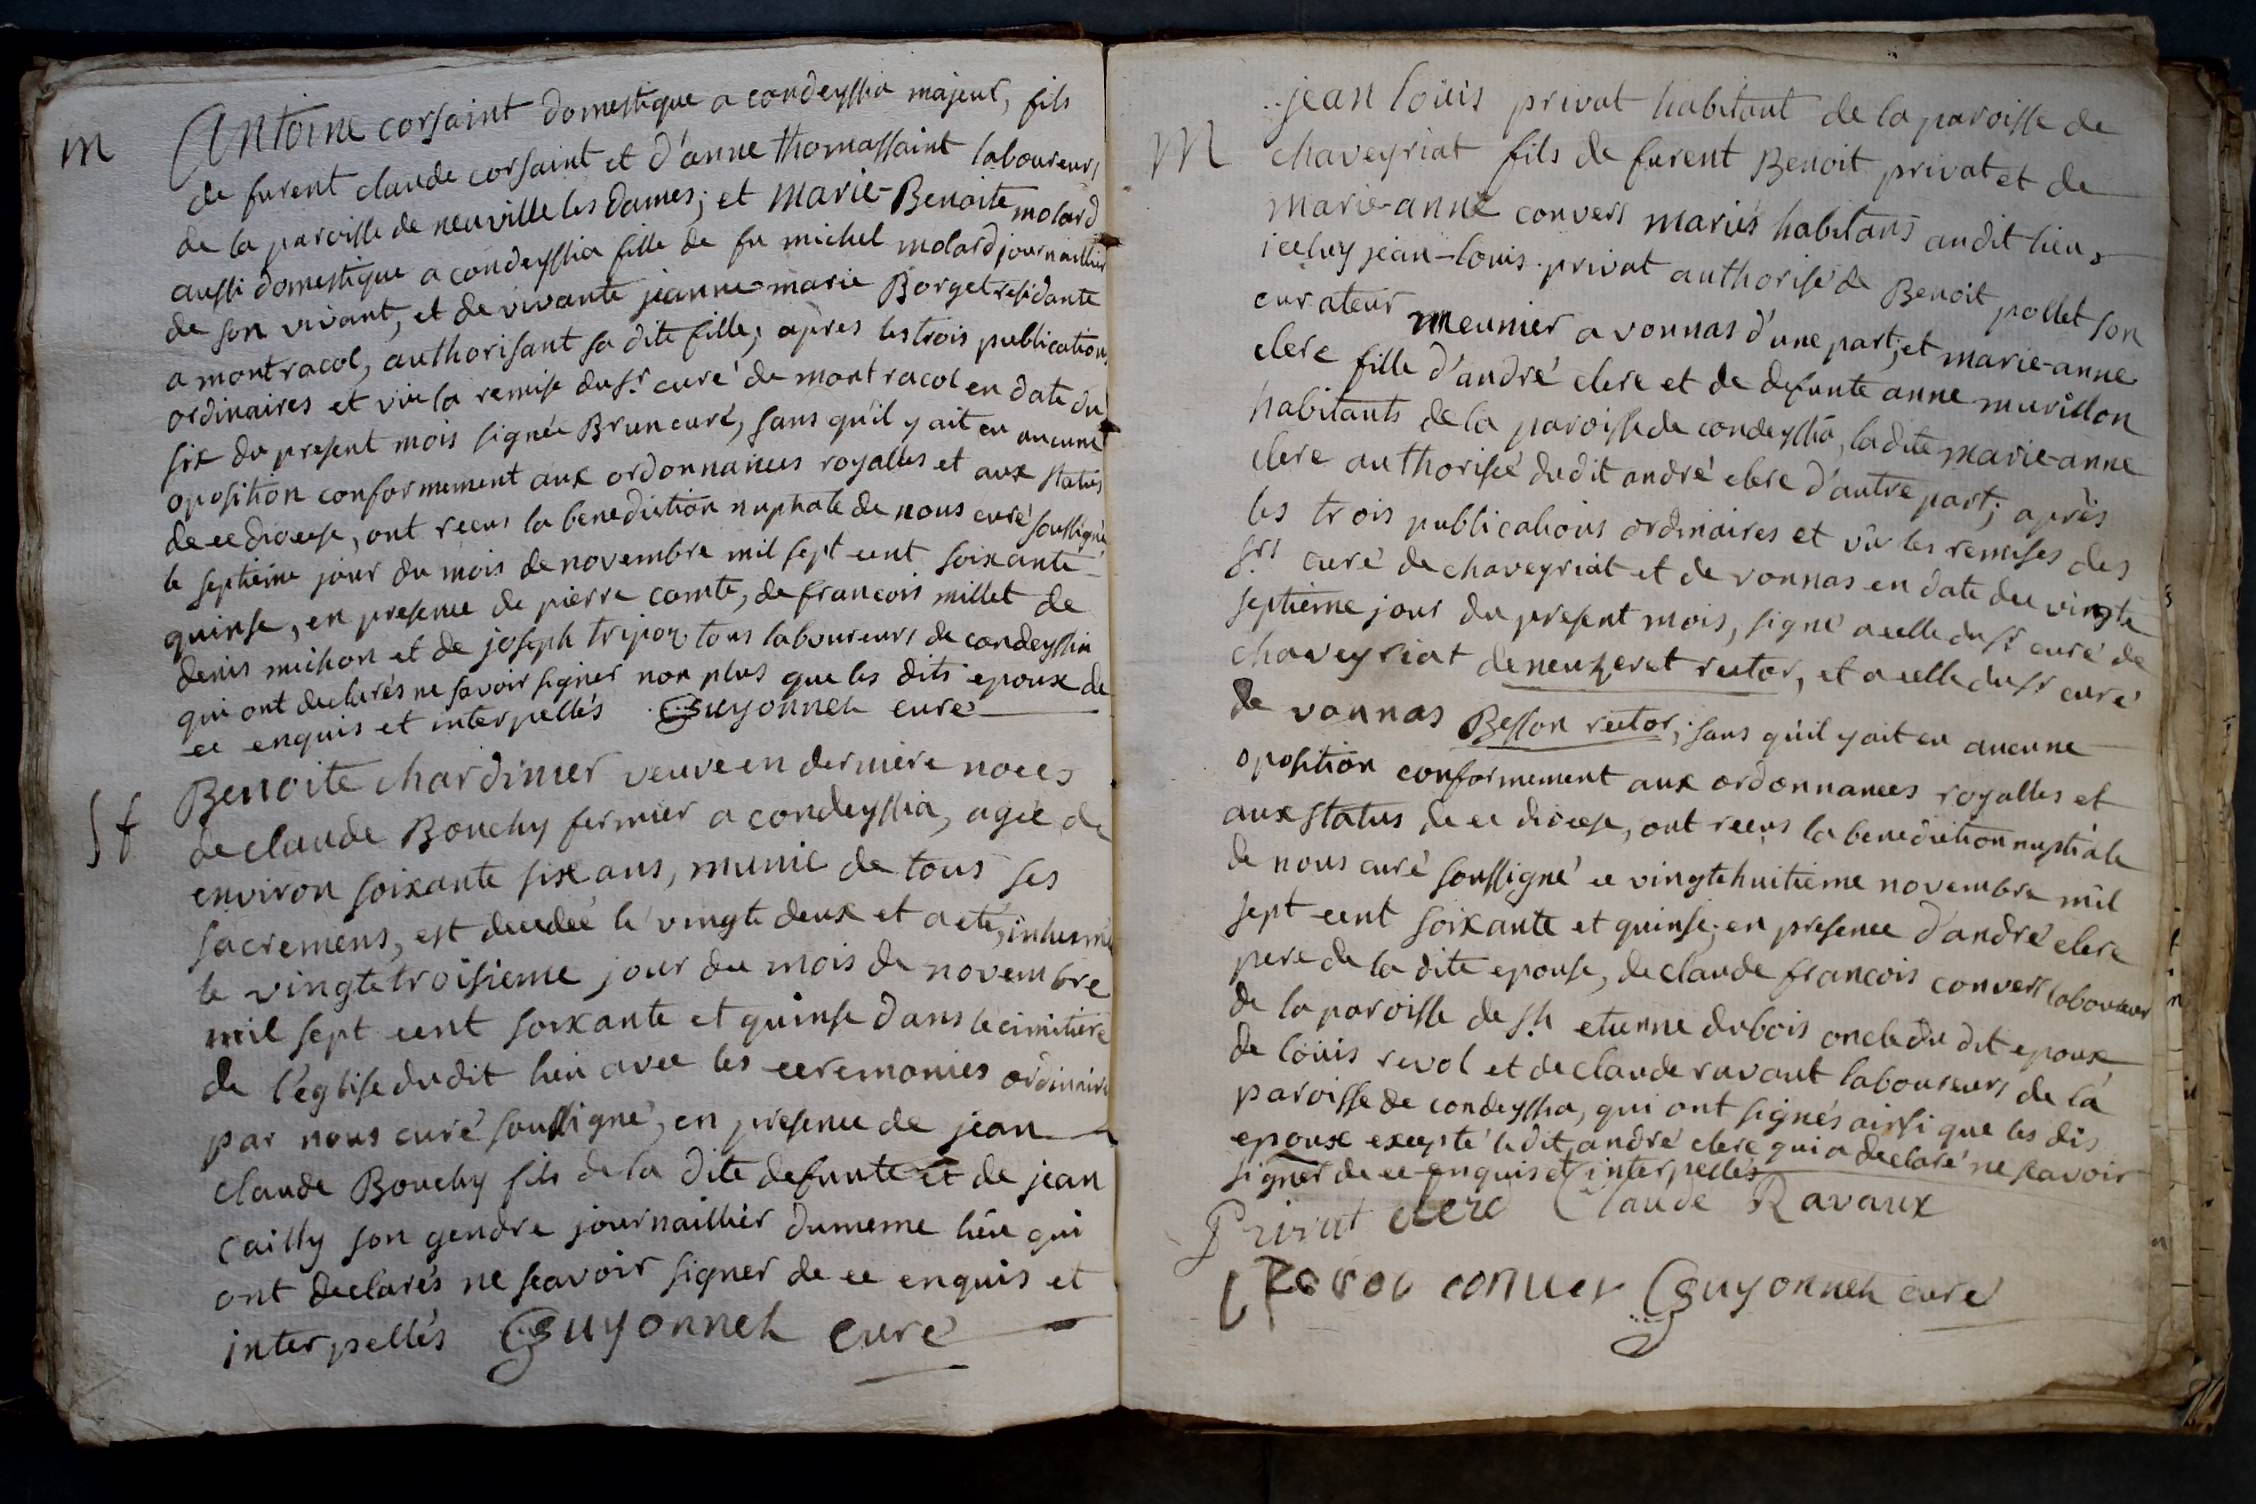 m
Antoine corsaint domestique a condeyssia majeur, fils
de furent claude corsaint et d'anne thomassaint laboureurs
de la paroisse de neuville les dames; et marie-Benoite molard
aussi domestique a condeyssia fille de fu michel molard journaillier
de son vivant, et de vivante jeanne-marie Borget residante
a montracol, authorisant sa dite fille; apres les trois publications
ordinaires et vûe la remise du Sr. curé de montracol en date du
six du present mois signée Brun curé, sans qu'il y ait eu aucune
oposition conformement aux ordonnances royalles et aux status
de ce diocese, ont recus la benediction nuptiale de nous curé soussigné
le septieme jour du mois de novembre mil sept cent soixante
quinse, en presence de pierre comte, de francois millet de
denis michon et de joseph tripoz tous laboureurs de condeyssia
qui ont declarés ne savoir signer non plus que les dits epoux de
ce enquis et interpellés Guyonnet curé
Sf
Benoite chardinier veuve en derniere noces
de claude Bouchy fermier a condeyssia, agée de
environ soixante six ans, munie de tous ses
sacremens, est decedée le vingt deux et a eté inhumé
le vingt troisieme jour du mois de novembre
mil sept cent soixante et quinse dans le cimitiere
de l'eglise dudit lieu avec les ceremonies ordinaires
par nous curé soussigné, en presence de jean
claude Bouchy fils de la dite defunte et de jean
cailly son gendre journaillier du meme lieu qui
ont declarés ne scavoir signer de ce enquis et
interpellés Guyonnet curé
M
jean loüis privat habitant de la paroisse de
chaveyriat fils de furent Benoit privat et de
marie-anne convers mariés habitans audit lieu,
iceluy jean-louis privat authorisé de Benoit pollet son
curateur meunier a vonnas d'une part; et marie-anne
clerc fille d'andré clerc et de defunte anne murillon
habitants de la paroisse de condeyssia, ladite marie-anne
clerc authorisée dudit andré clerc d'autre part; après
les trois publications ordinaires et vûe les remises des
Srs curé de chaveyriat et de vonnas en date du vingt
septieme jour du present mois, signé a celle du Sr curé de
chaveyriat deneuzeret rector, et a celle du Sr curé
de vonnas Besson rector; sans qu'il y ait eu aucune
oposition conformement aux ordonnances royalles et
aux status de ce diocese, ont recus la benediction nuptiale
de nous curé soussigné ce vingt huitieme novembre mil
sept cent soixante et quinse; en presence d'andré clerc
pere de la dite epouse, de claude francois convers laboureur
de la paroisse de St. etienne dubois oncle du dit epoux,
de loüis revol et de claude ravaut laboureurs de la
paroisse de condeyssia, qui ont signés ainsi que les dis
epoux excepté ledit andré clerc qui a declaré ne scavoir
signer de ce enquis et interpellés
Privat clerc Claude Ravaux
convers Guyonnet curé